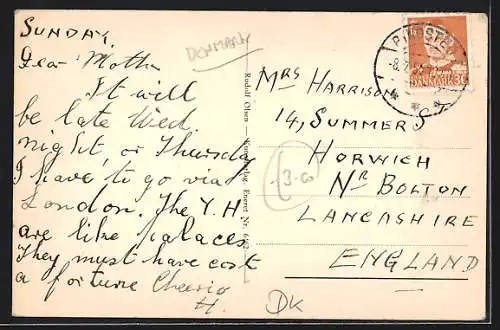 SUNDAY.
DENMARK
Dear Mother
It will
be late Wed.
night, or Thursday
I have to go via
London. The Y.H.
are like palaces
They must have cost
a fortune Cheerio
H.
Rudolf Olsen — Kunstforlag Eneret Nr.
MRS HARRISON
14, SUMMER S
HORWICH
NR BOLTON
LANCASHIRE
ENGLAND
DK